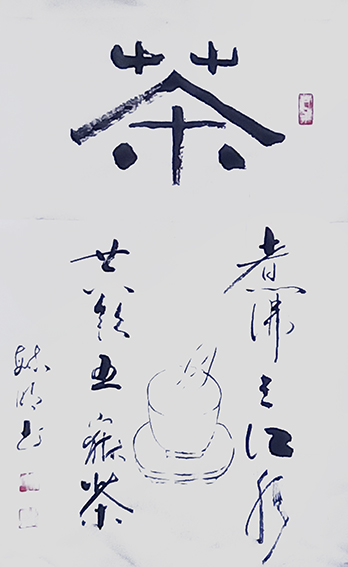 茶
煮沸三江水
共飲五嶽茶